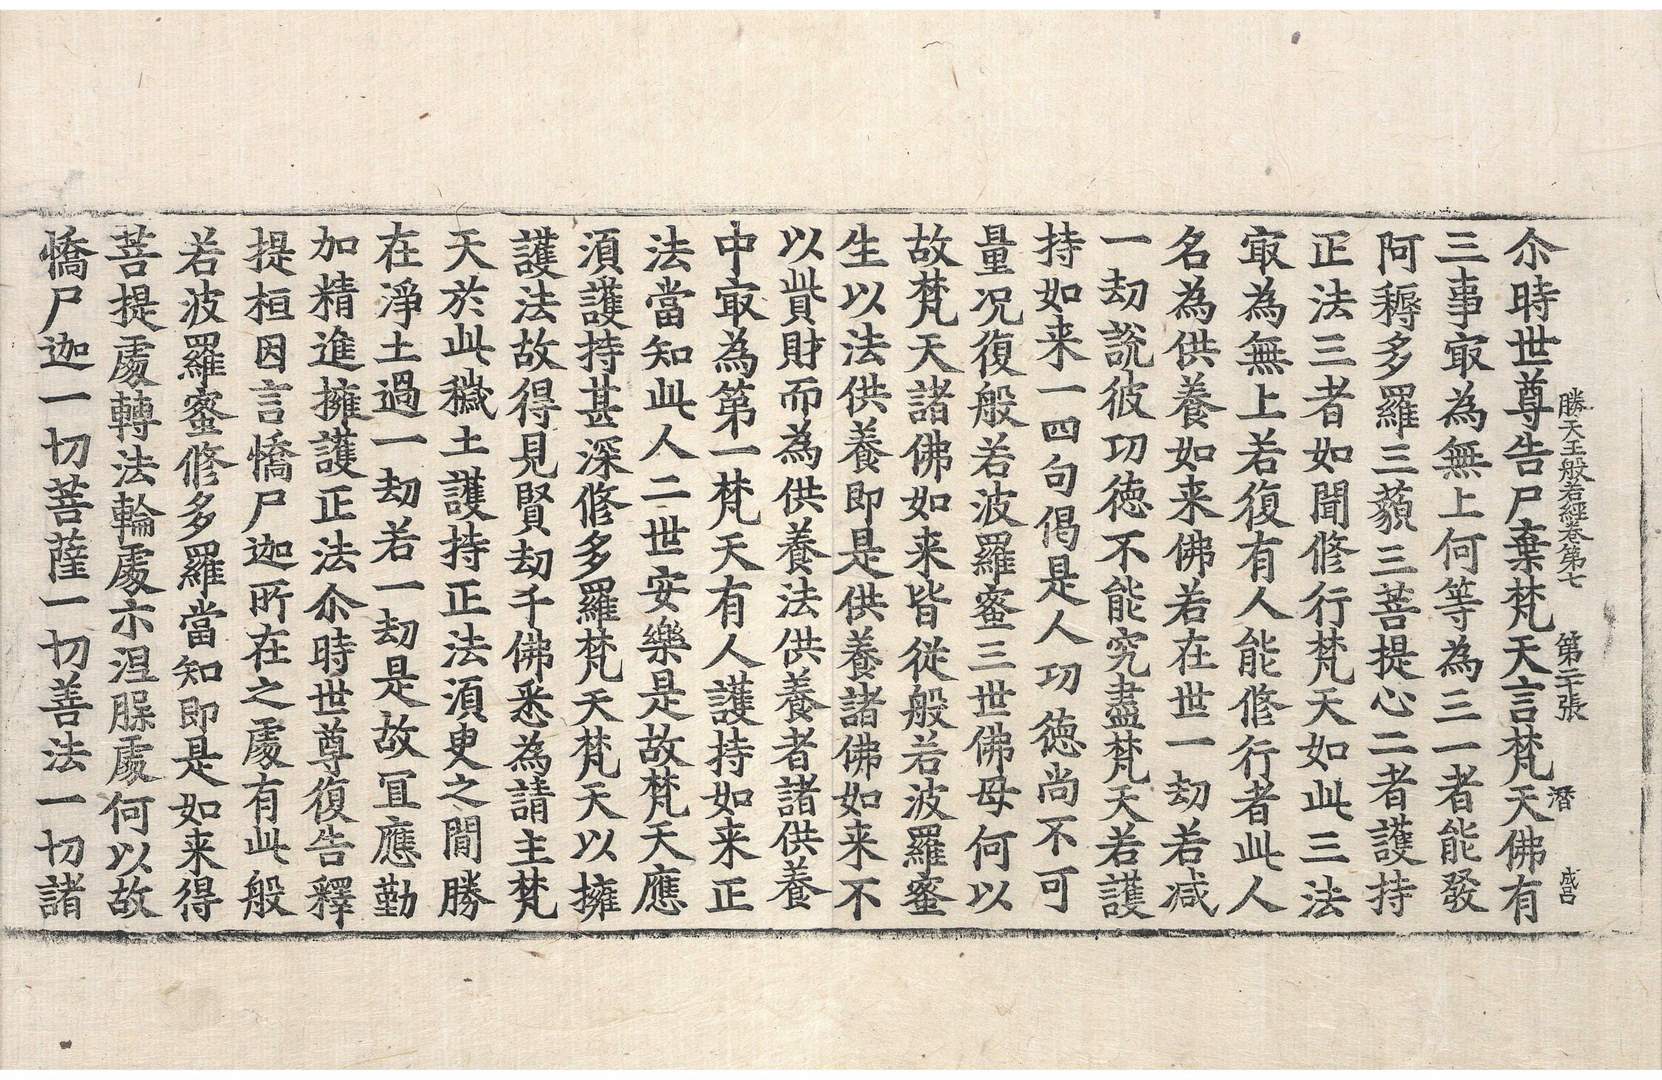 勝天王般若經卷第七 第二十張 潛 成呂
尒時世尊告尸棄梵天言梵天佛有
三事㝡為無上何等為三一者能發
阿耨多羅三藐三菩提心二者護持
正法三者如聞修行梵天如此三法
㝡為無上若復有人能修行者此人
名為供養如来佛若在世一劫若減
一劫說彼功徳不能究盡梵天若護
持如来一四句偈是人功徳尚不可
量况復般若波羅蜜三世佛母何以
故梵天諸佛如来皆從般若波羅蜜
生以法供養即是供養諸佛如来不
以貲財而為供養法供養者諸供養
中㝡為第一梵天有人護持如来正
法當知此人二世安樂是故梵天應
湏護持甚深修多羅梵天梵天以擁
護法故得見賢劫千佛悉為請主梵
天於此穢土護持正法湏臾之間勝
在淨土過一劫若一劫是故冝應勤
加精進擁護正法尒時世尊復告釋
提桓因言憍尸迦所在之處有此般
若波羅蜜修多羅當知即是如来得
菩提處轉法輪處亦涅槃處何以故
憍尸迦一切菩薩一切善法一切諸